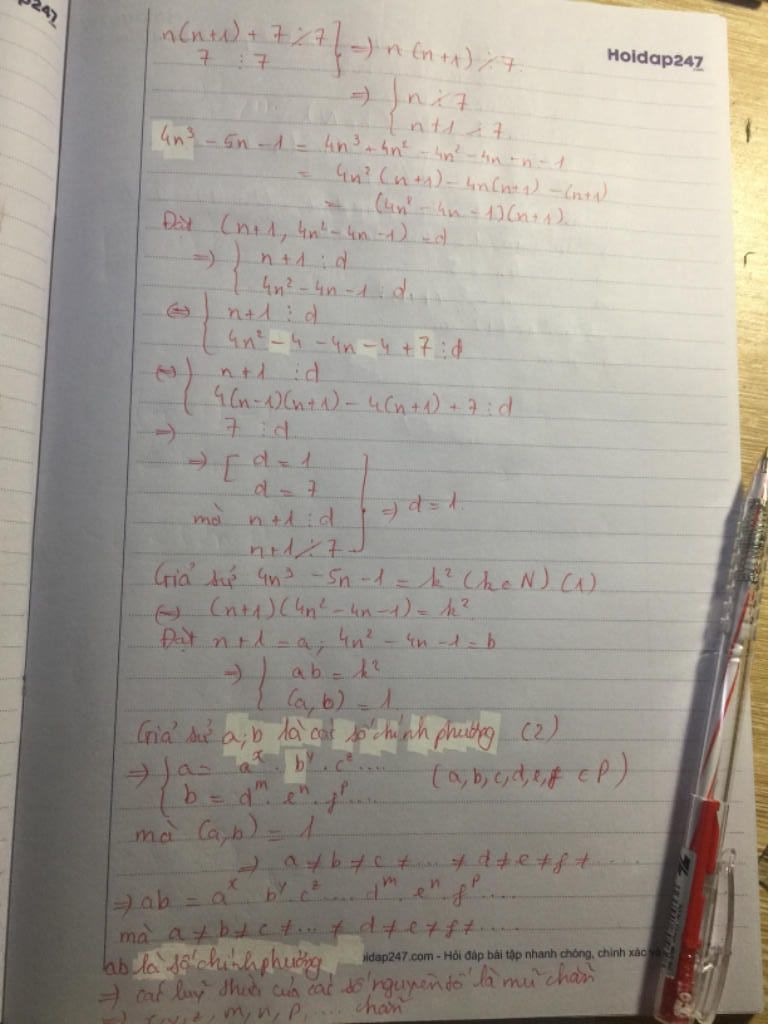 Hoidap247
n(n+1) + 7 ⋮̸ 7
7 ⋮ 7 } => n(n+1) ⋮̸ 7
=> { n ⋮̸ 7
n+1 ⋮̸ 7
4n³ - 5n - 1 = 4n³ + 4n² - 4n² - 4n - n - 1
= 4n²(n+1) - 4n(n+1) - (n+1)
= (4n² - 4n - 1)(n+1).
Đặt (n+1, 4n² - 4n - 1) = d
=> { n+1 ⋮ d
4n² - 4n - 1 ⋮ d.
<=> { n+1 ⋮ d
4n² - 4 - 4n - 4 + 7 ⋮ d
<=> { n+1 ⋮ d
4(n-1)(n+1) - 4(n+1) + 7 ⋮ d
=> 7 ⋮ d.
=> [ d = 1
d = 7
mà n+1 ⋮ d
n+1 ⋮̸ 7 } => d = 1.
Giả sử 4n³ - 5n - 1 = k² (k ∈ N) (1)
<=> (n+1)(4n² - 4n - 1) = k²
Đặt n+1 = a; 4n² - 4n - 1 = b
=> { ab = k²
(a,b) = 1.
Giả sử a; b là các số chính phương (2)
=> { a = aˣ . bʸ . cᶻ .... (a,b,c,d,e,f ∈ P)
b = dᵐ . eⁿ . fᵖ....
mà (a,b) = 1
=> a ≠ b ≠ c ≠ ... ≠ d ≠ e ≠ f ≠ ....
=> ab = aˣ . bʸ . cᶻ .... dᵐ . eⁿ . fᵖ ....
mà a ≠ b ≠ c ≠ ... ≠ d ≠ e ≠ f ≠ ....
ab là số chính phương
oidap247.com - Hỏi đáp bài tập nhanh chóng, chính xác và
=> các luỹ thừa của các số nguyên tố là mũ chẵn
=> x, y, z, m, n, p, .... chẵn